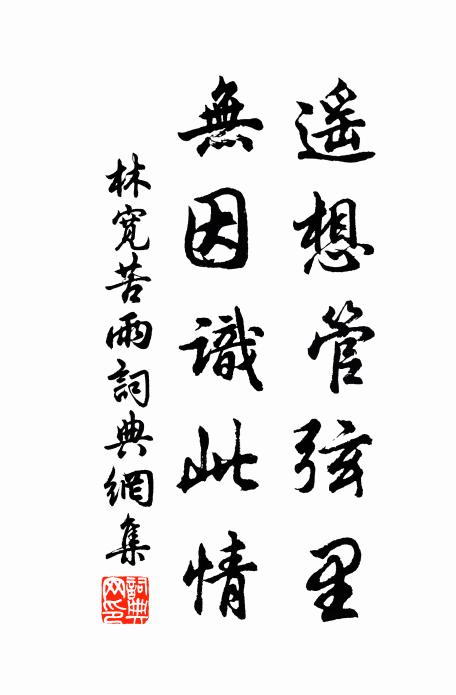 遥想管弦里
無因識此情
林寬苦雨詞典網集
詞典網印